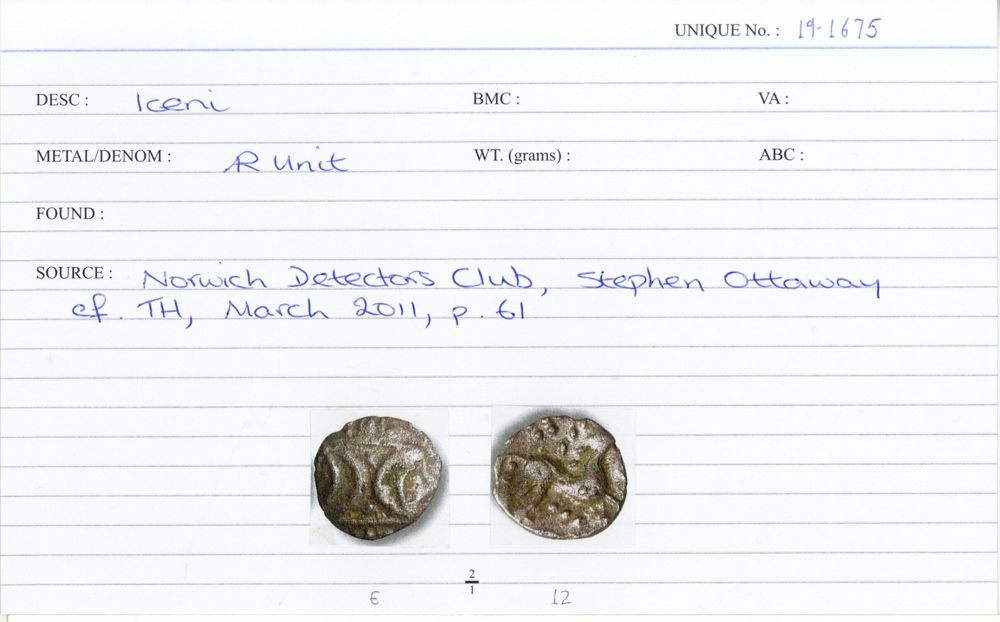 UNIQUE No. : 19-1675
DESC : Iceni BMC : VA :
METAL/DENOM : AR Unit WT. (grams) : ABC :
FOUND :
SOURCE : Norwich Detectors Club, Stephen Ottaway
cf. TH, March 2011, p. 61
2
1
€ 12